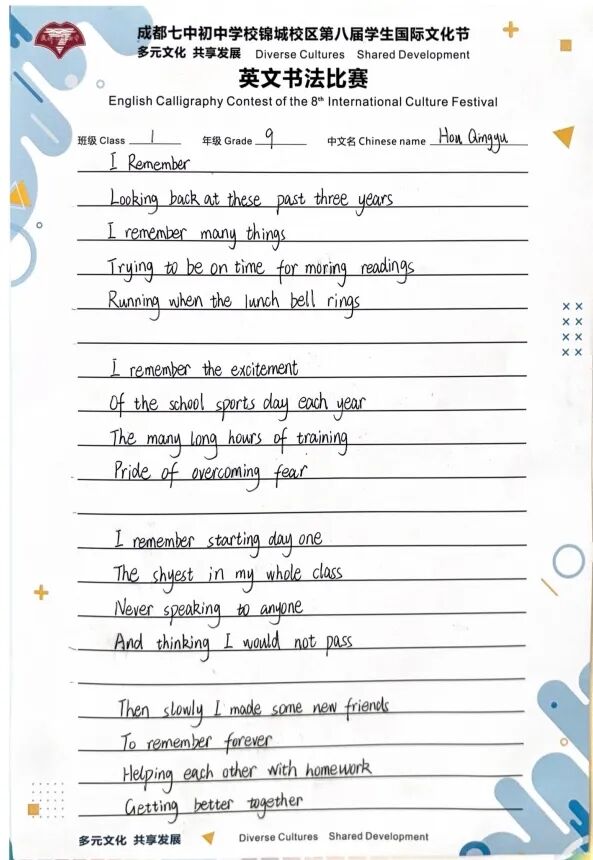 成都七中初中学校锦城校区第八届学生国际文化节
多元文化 共享发展 Diverse Cultures Shared Development
英文书法比赛
English Calligraphy Contest of the 8th International Culture Festival
班级 Class 1 年级 Grade 9 中文名 Chinese name Hou Qingyu
I Remember
Looking back at these past three years
I remember many things
Trying to be on time for moring readings
Running when the lunch bell rings
I remember the excitement
Of the school sports day each year
The many long hours of training
Pride of overcoming fear
I remember starting day one
The shyest in my whole class
Never speaking to anyone
And thinking I would not pass
Then slowly I made some new friends
To remember forever
Helping each other with homework
Getting better together
多元文化 共享发展 Diverse Cultures Shared Development